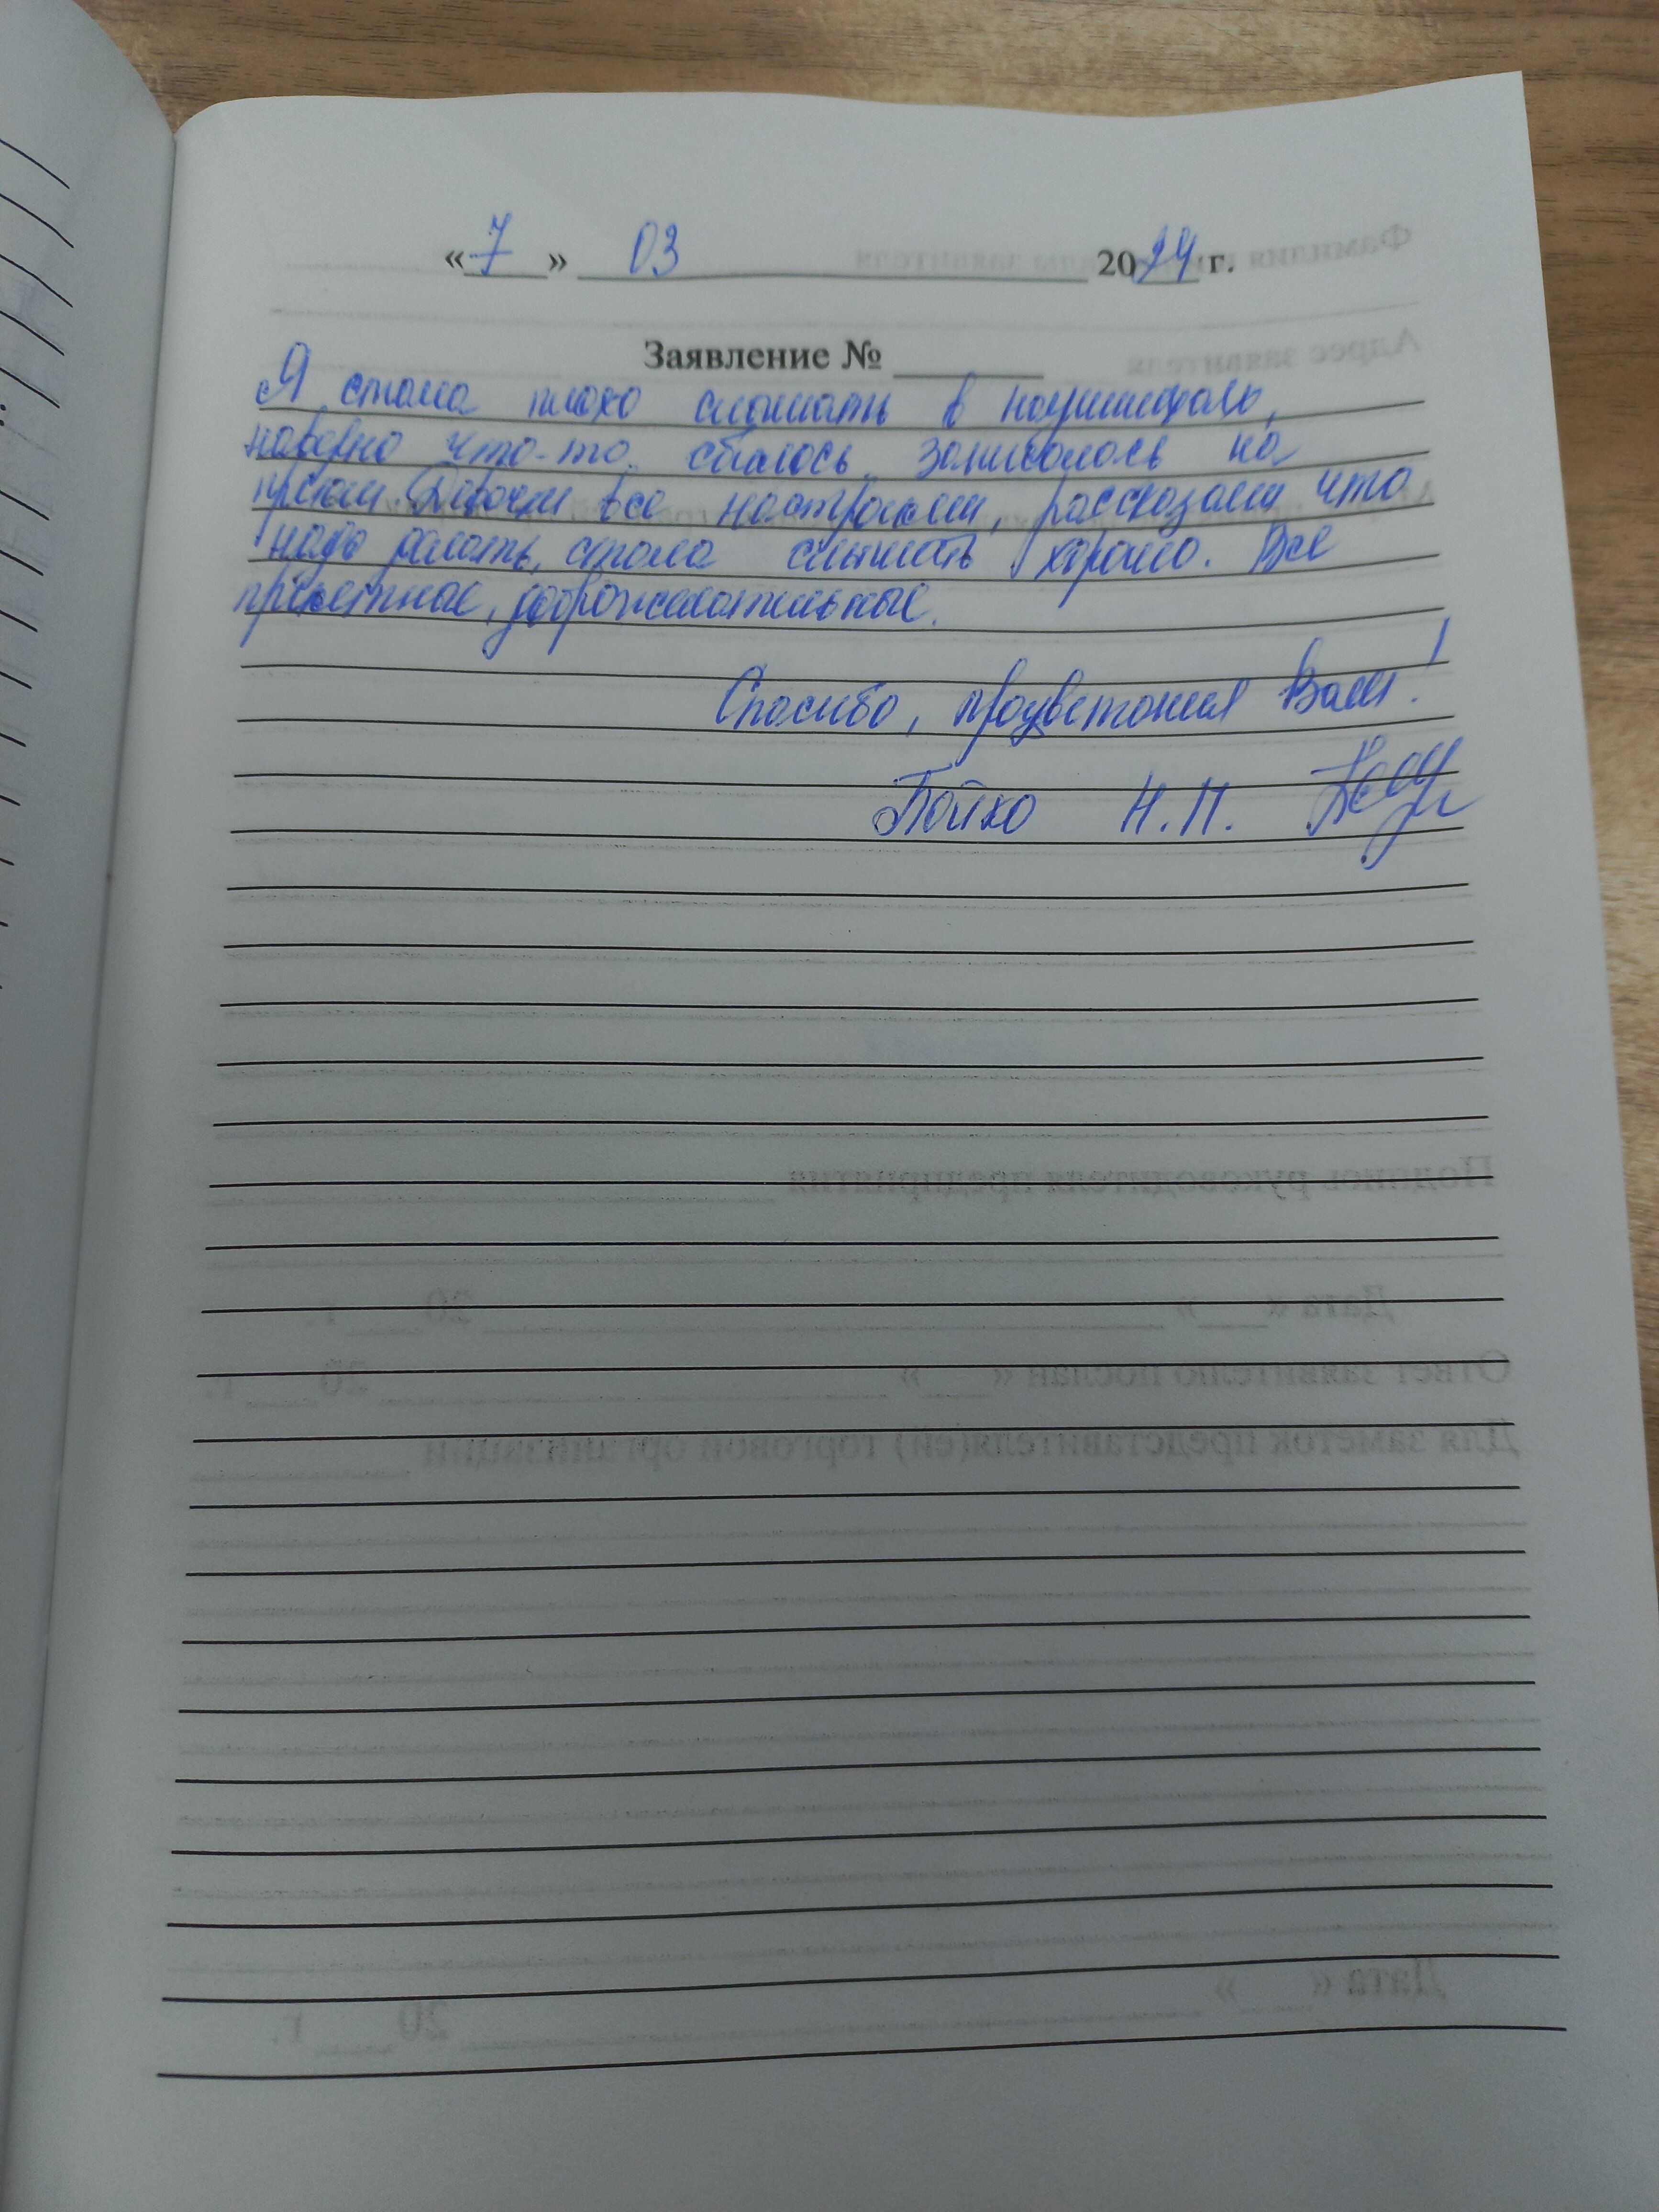 «7» 03 2024 г.
Заявление № ____
Я стала плохо слышать в наушниках,
наверно что-то сбилось, записалась на
прием. Девочки все настроили, рассказали что
надо делать, стала слышать хорошо. Все
приветные, доброжелательные.
Спасибо, процветания Вам!
Бойко Н.П.